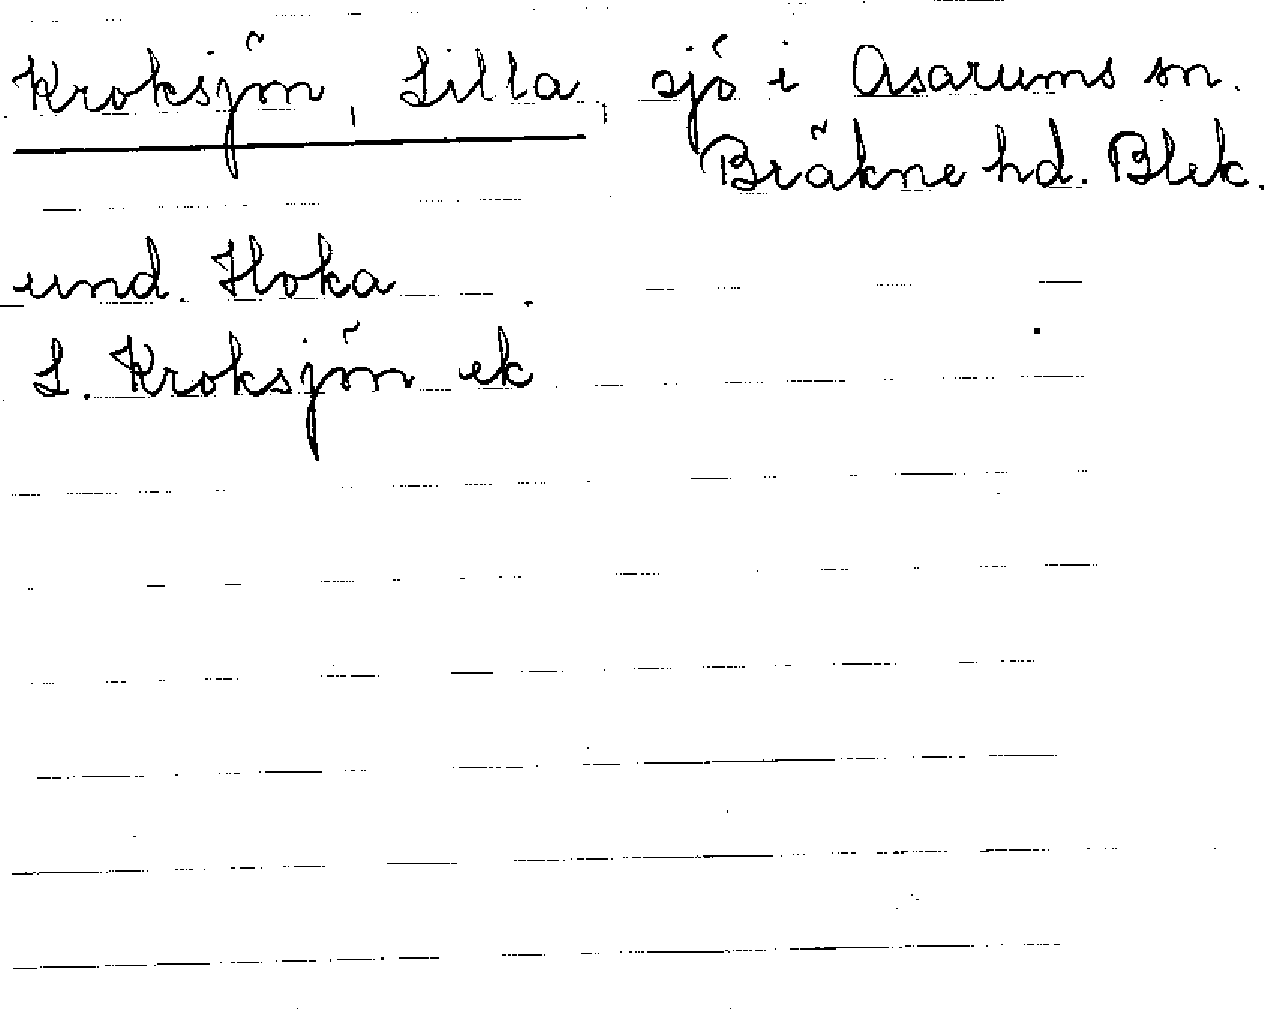 Kroksjön, Lilla, sjö i Asarums sn.
Bräkne hd. Blek.
und. Hoka
L. Kroksjön ek